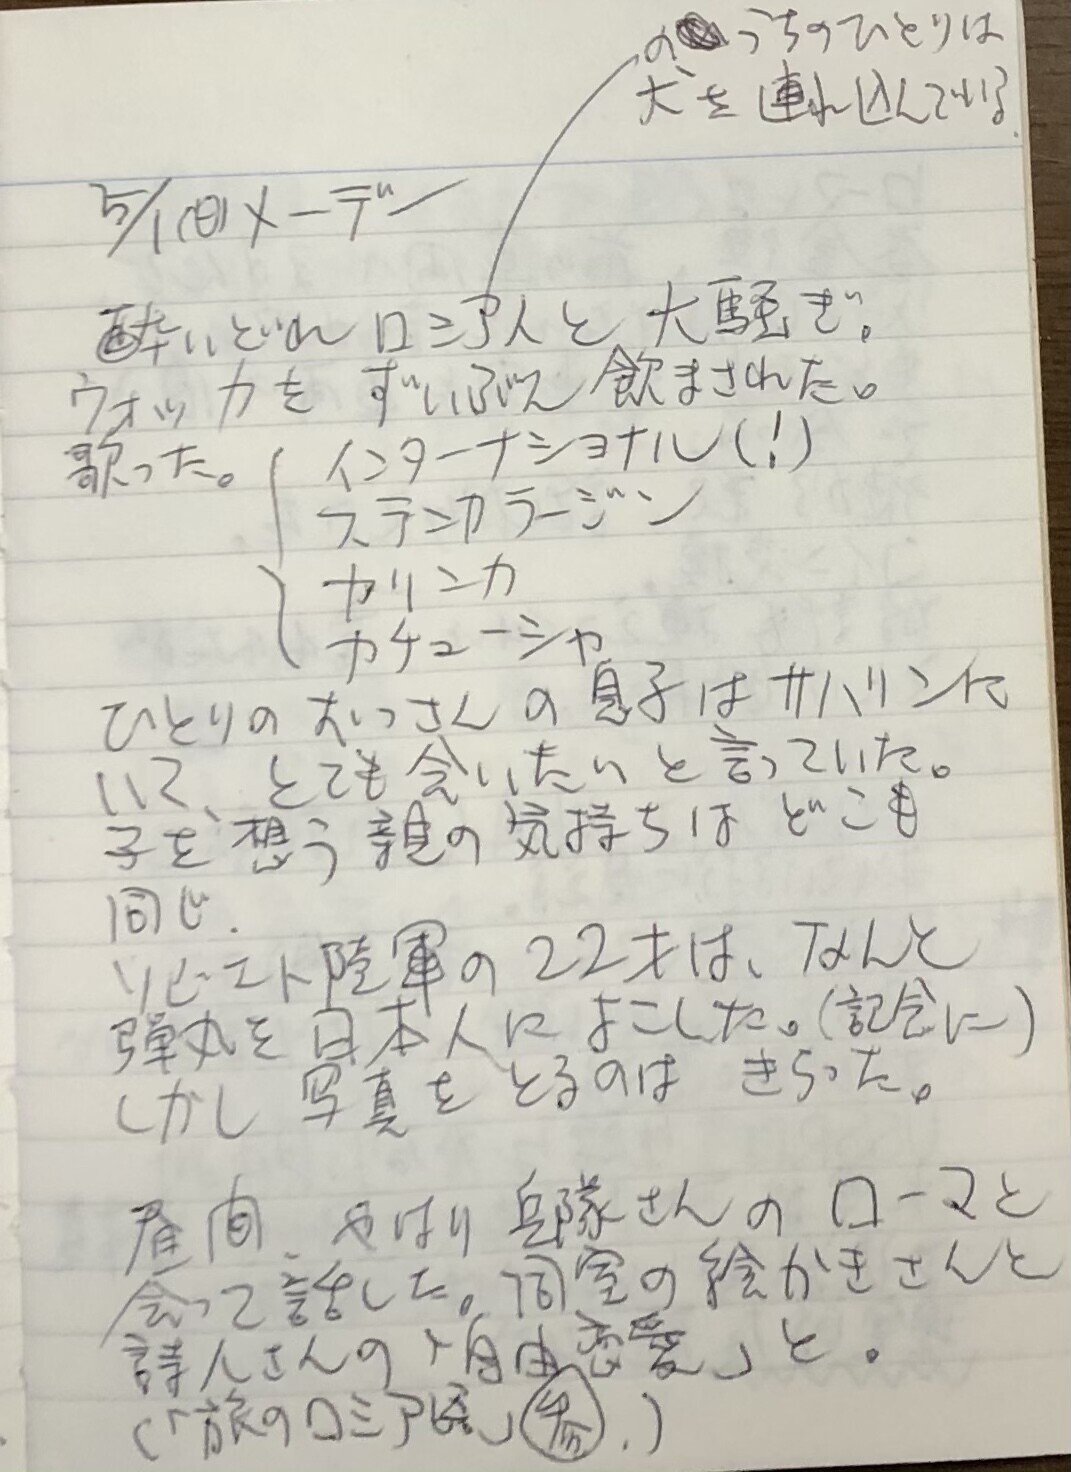 のうちのひとりは
犬を連れ込んでいる.
5/1(日)メーデー
酔いどれロシア人と大騒ぎ。
ウォッカをずいぶん飲まされた。
歌った。インターナショナル(!)
ステンカラージン
カリンカ
カチューシャ
ひとりのおっさんの息子はサハリンに
いて、とても会いたいと言っていた。
子を想う親の気持ちはどこも
同じ.
ソビエト陸軍の22才は、なんと
弾丸を日本人によこした。(記念に)
しかし写真をとるのはきらった。
昼間、やはり兵隊さんのローマと
会って話した。同室の絵かきさんと
詩人さんの「自由恋愛」と。
(「旅のロシア語」.)